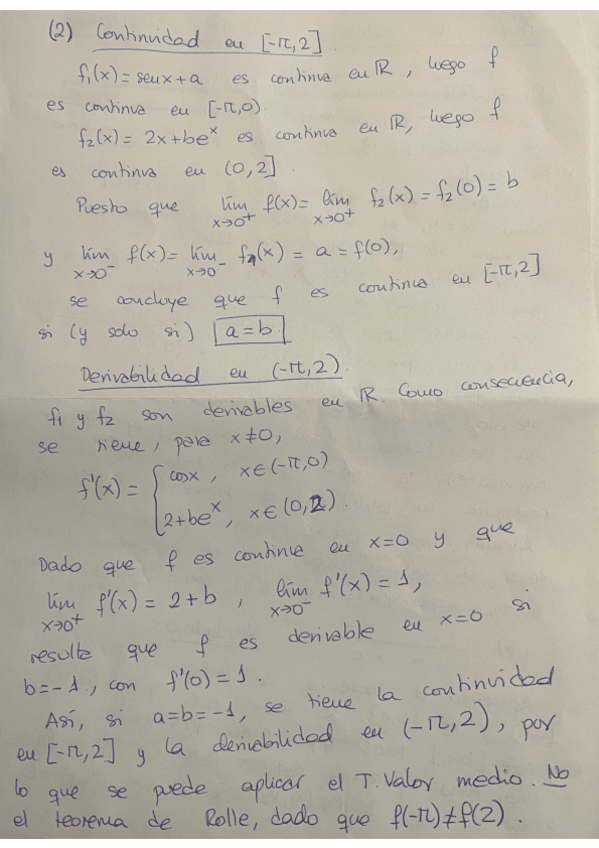 (2) Continuidad en [-π,2]
f₁(x) = senx + a es continua en ℝ, luego f
es continua en [-π,0)
f₂(x) = 2x + beˣ es continua en ℝ, luego f
es continua en (0,2]
Puesto que lím x→0⁺ f(x) = lím x→0⁺ f₂(x) = f₂(0) = b
y lím x→0⁻ f(x) = lím x→0⁻ f₁(x) = a = f(0),
se concluye que f es continua en [-π,2]
si (y solo si) a = b.
Derivabilidad en (-π,2).
f₁ y f₂ son derivables en ℝ. Como consecuencia,
se tiene, para x≠0,
f'(x) = { cosx, x∈(-π,0)
2+beˣ, x∈(0,2).
Dado que f es continua en x=0 y que
lím x→0⁺ f'(x) = 2+b, lím x→0⁻ f'(x) = 1,
resulta que f es derivable en x=0 si
b=-1, con f'(0)=1.
Así, si a=b=-1, se tiene la continuidad
en [-π,2] y la derivabilidad en (-π,2), por
lo que se puede aplicar el T. Valor medio. No
el teorema de Rolle, dado que f(-π)≠f(2).